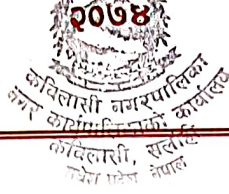 २०७४
कविलासी नगरपालिका
नगर कार्यपालिकाको कार्यालय
कविलासी, सर्लाही
मधेश प्रदेश नेपाल